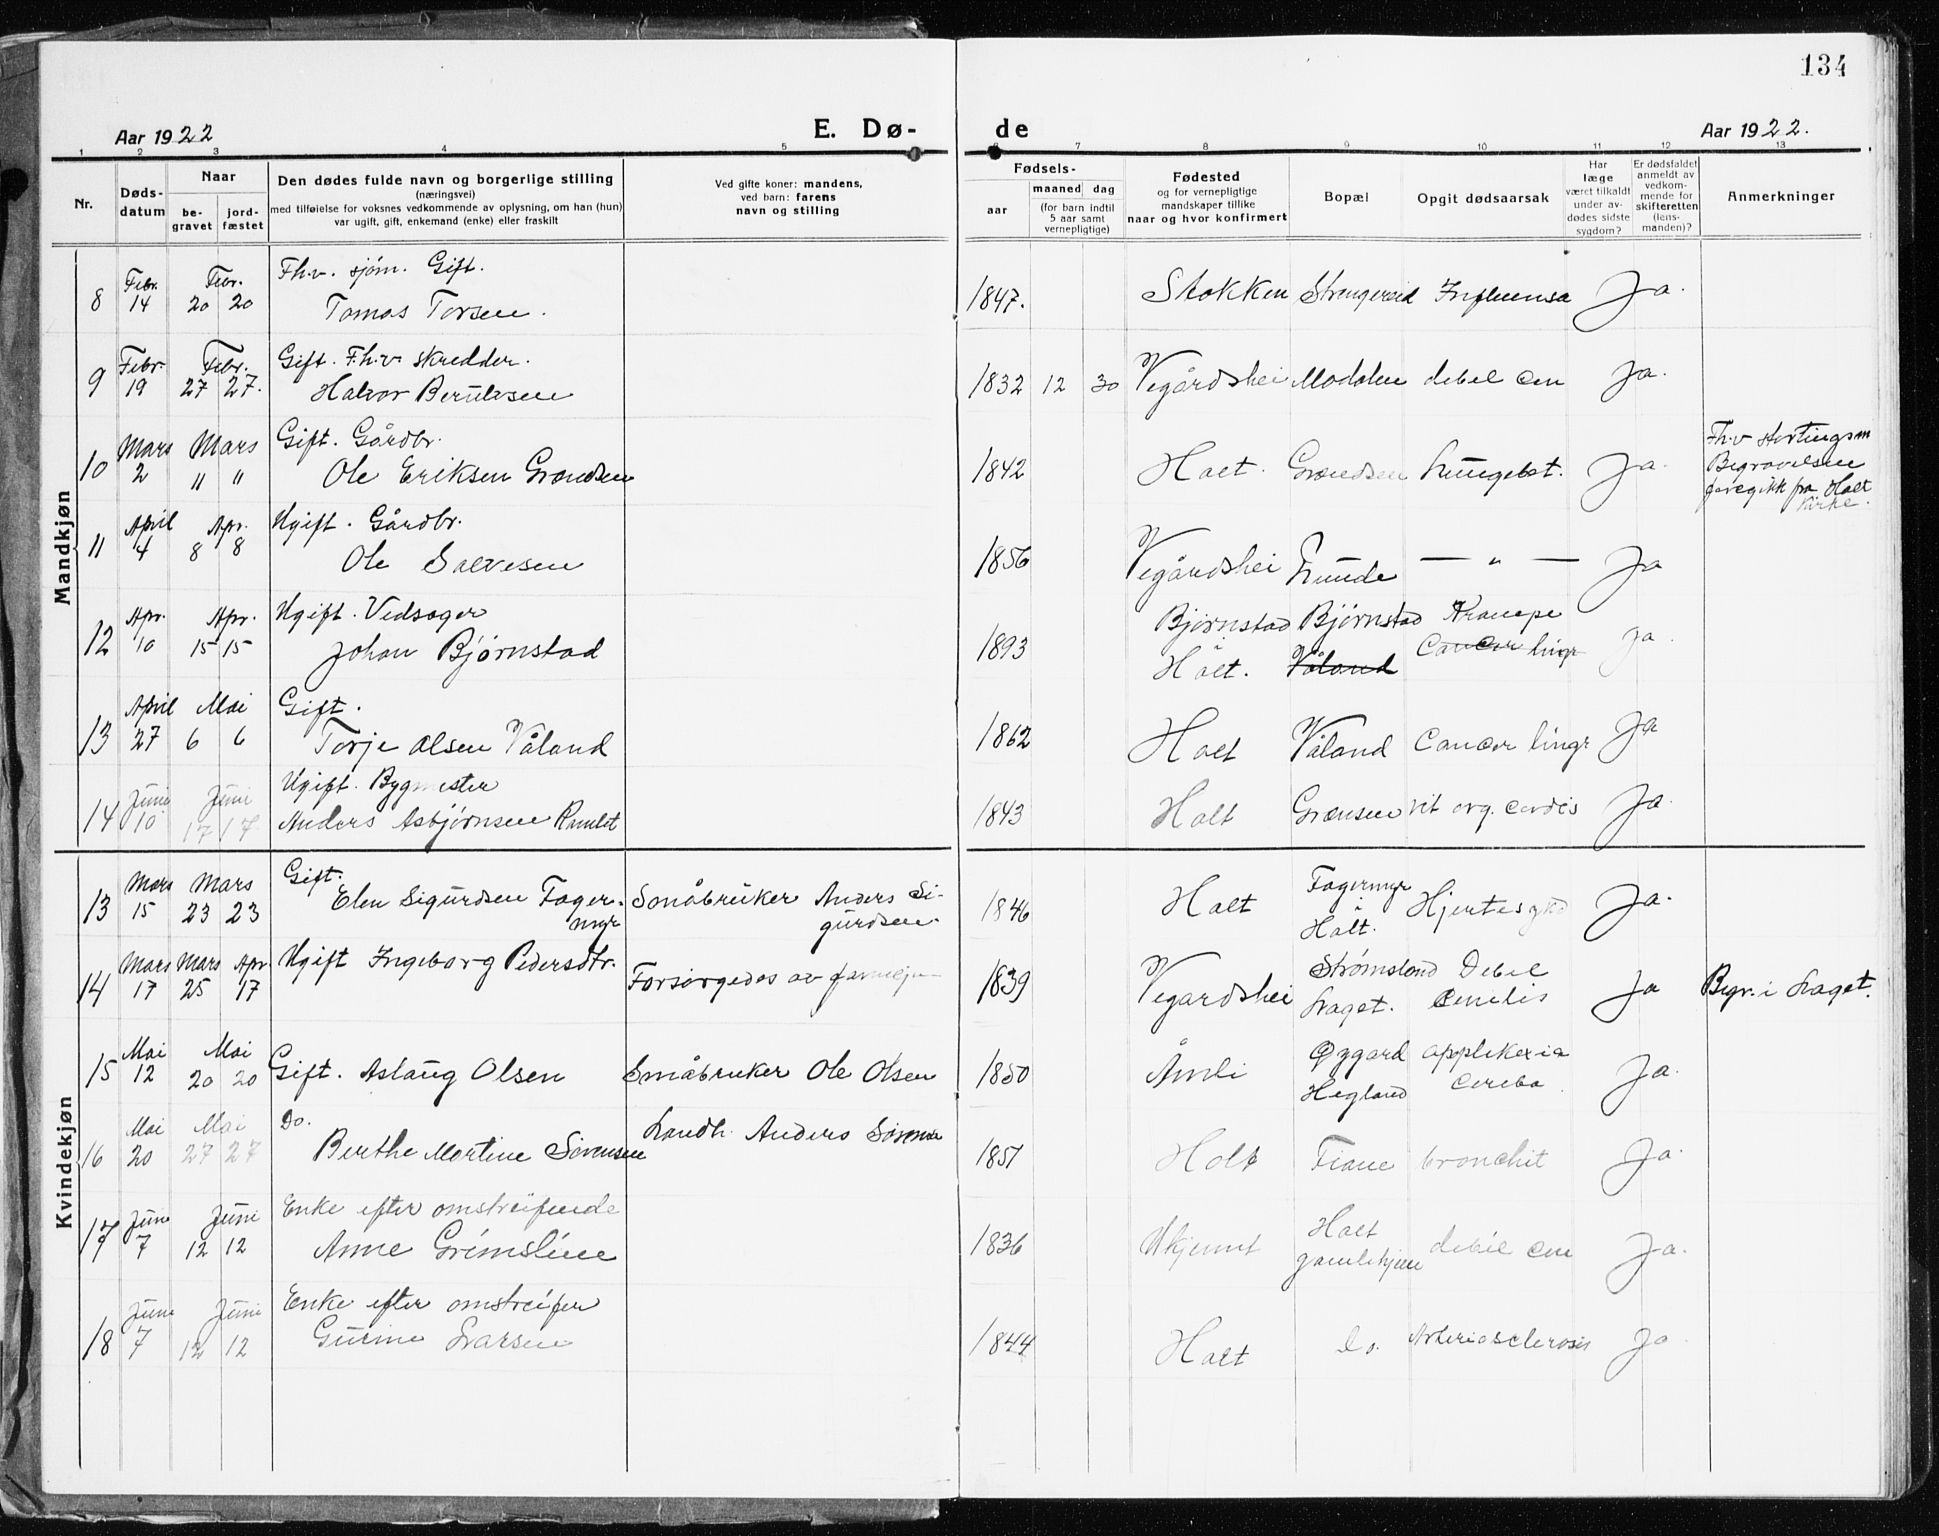 134
Aar 1922
E. Dø-
de
Aar 1922.
1 2 3 4 5 6 7 8 9 10 11 12 13
Nr.
Døds-
datum
Naar
be-
gravet
jord-
fæstet
Den dødes fulde navn og borgerlige stilling
(næringsvei)
med tilføielse for voksnes vedkommende av oplysning, om han (hun)
var ugift, gift, enkemand (enke) eller fraskilt
Ved gifte koner: mandens,
ved barn: farens
navn og stilling
Fødsels-
aar
maaned dag
(for barn indtil
5 aar samt
vernepligtige)
Fødested
og for vernepligtige
mandskaper tillike
naar og hvor konfirmert
Bopæl
Opgit dødsaarsak
Har
læge
været tilkaldt
under av-
dødes sidste
sygdom?
Er dødsfaldet
anmeldt av
vedkom-
mende for
skifteretten
(lens-
manden)?
Anmerkninger
Mandkjøn
Febr. Febr. Fh.v. sjøm. Gift.
8 14 20 20 Tomas Torsen. 1847. Stokken Strengereid Influensa Ja.
Febr. Febr. Gift. F.h.v. skredder.
9 19 27 27. Halvor Berulvsen 1832 12 30 Vegårdshei Modalen debil cen Ja.
Mars Mars Gift. Gårdbr.
10 2 11 11 Ole Eriksen Grændsen 1842 Holt. Grændsen Lungebet. Ja.
Fh.v stortingsm
Begravelsen
foregikk fra Holt
Kirke.
April Apr. Ugift. Gårdbr.
11 4 8 8 Ole Salvesen 1856 Vegårdshei Lunde — " — Ja
Apr. Apr. Ugift. Vedsager Bjørnstad Bjørnstad Krampe
12 10 15 15 Johan Bjørnstad 1893 Holt. Våland Cancer lingr Ja.
April Mai Gift.
13 27 6 6 Torje Olsen Våland 1862 Holt Våland Cancer lingr Ja
Juni Juni Ugift. Bygmester
14 10 17 17 Anders Asbjørnsen Ramlet 1843 Holt Grænsen vit org. cordis Ja.
Kvindekjøn
Mars Mars Gift.
13 15 23 23 Elen Sigurdsen Fager- Småbruker Anders Si- 1846 Holt Fagermyr Hjertesykd Ja.
myr gurdsen i
Holt.
Mars Mars Apr. Ugift Ingeborg Pedersdtr. Strømsland Debil
14 17 25 17 Forsørgedes av 1839 Vegardshei Laget. cenilis Ja Begr. i Laget.
Mai Mai Øygard applekxia
15 12 20 20 Gift. Aslaug Olsen Småbruker Ole Olsen 1850 Åmli Hegland cereba Ja.
Mai Mai Do. Landh. Anders Sørensen
16 20 27 27 Berthe Martine Sørensen 1851 Holt Fiane bronchit Ja.
Juni Juni Enke efter omstreifende Holt
17 7 12 12 Anne Grimsline 1836 Ukjennt gamlehjem debil cen Ja.
Juni Juni Enke efter omstreifer
18 7 12 12 Gurine Larsen 1844 Holt Do. Arteriosclerosis Ja.